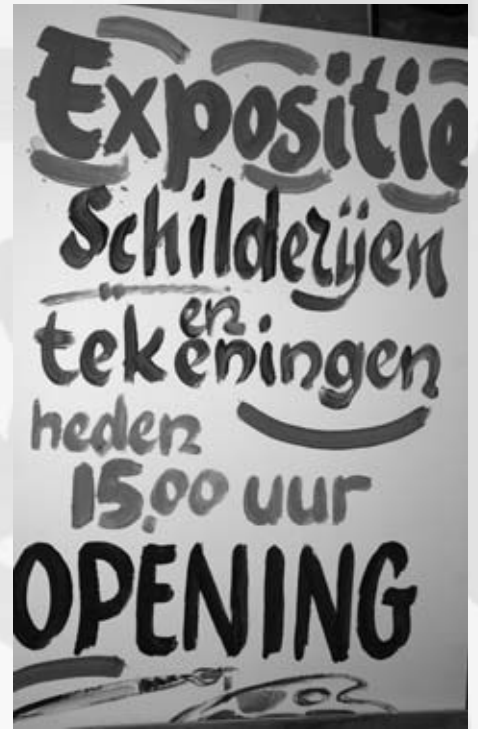 Expositie
Schilderijen
en
tekeningen
heden
15.00 uur
OPENING